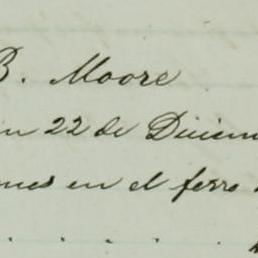 B. Moore
en 22 de Diciem
ones en el ferro